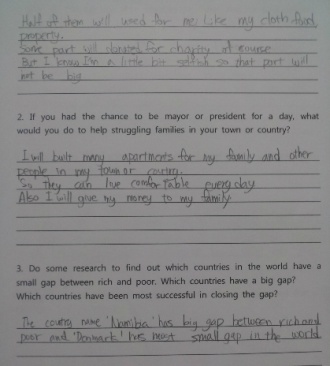 Half of them will used for me. Like my cloth, food,
property.
Some part will donated for charity of course
But I know I'm a little bit selfish so that part will
not be big
2. If you had the chance to be mayor or president for a day, what
would you do to help struggling families in your town or country?
I will built many apartments for my family and other
people in my town or
So they can live comfortable everyday
Also I will give my money to my family
3. Do some research to find out which countries in the world have a
small gap between rich and poor. Which countries have a big gap?
Which countries have been most successful in closing the gap?
The country name 'Namibia' has big gap between rich and
poor and 'Denmark' has most small gap in the world